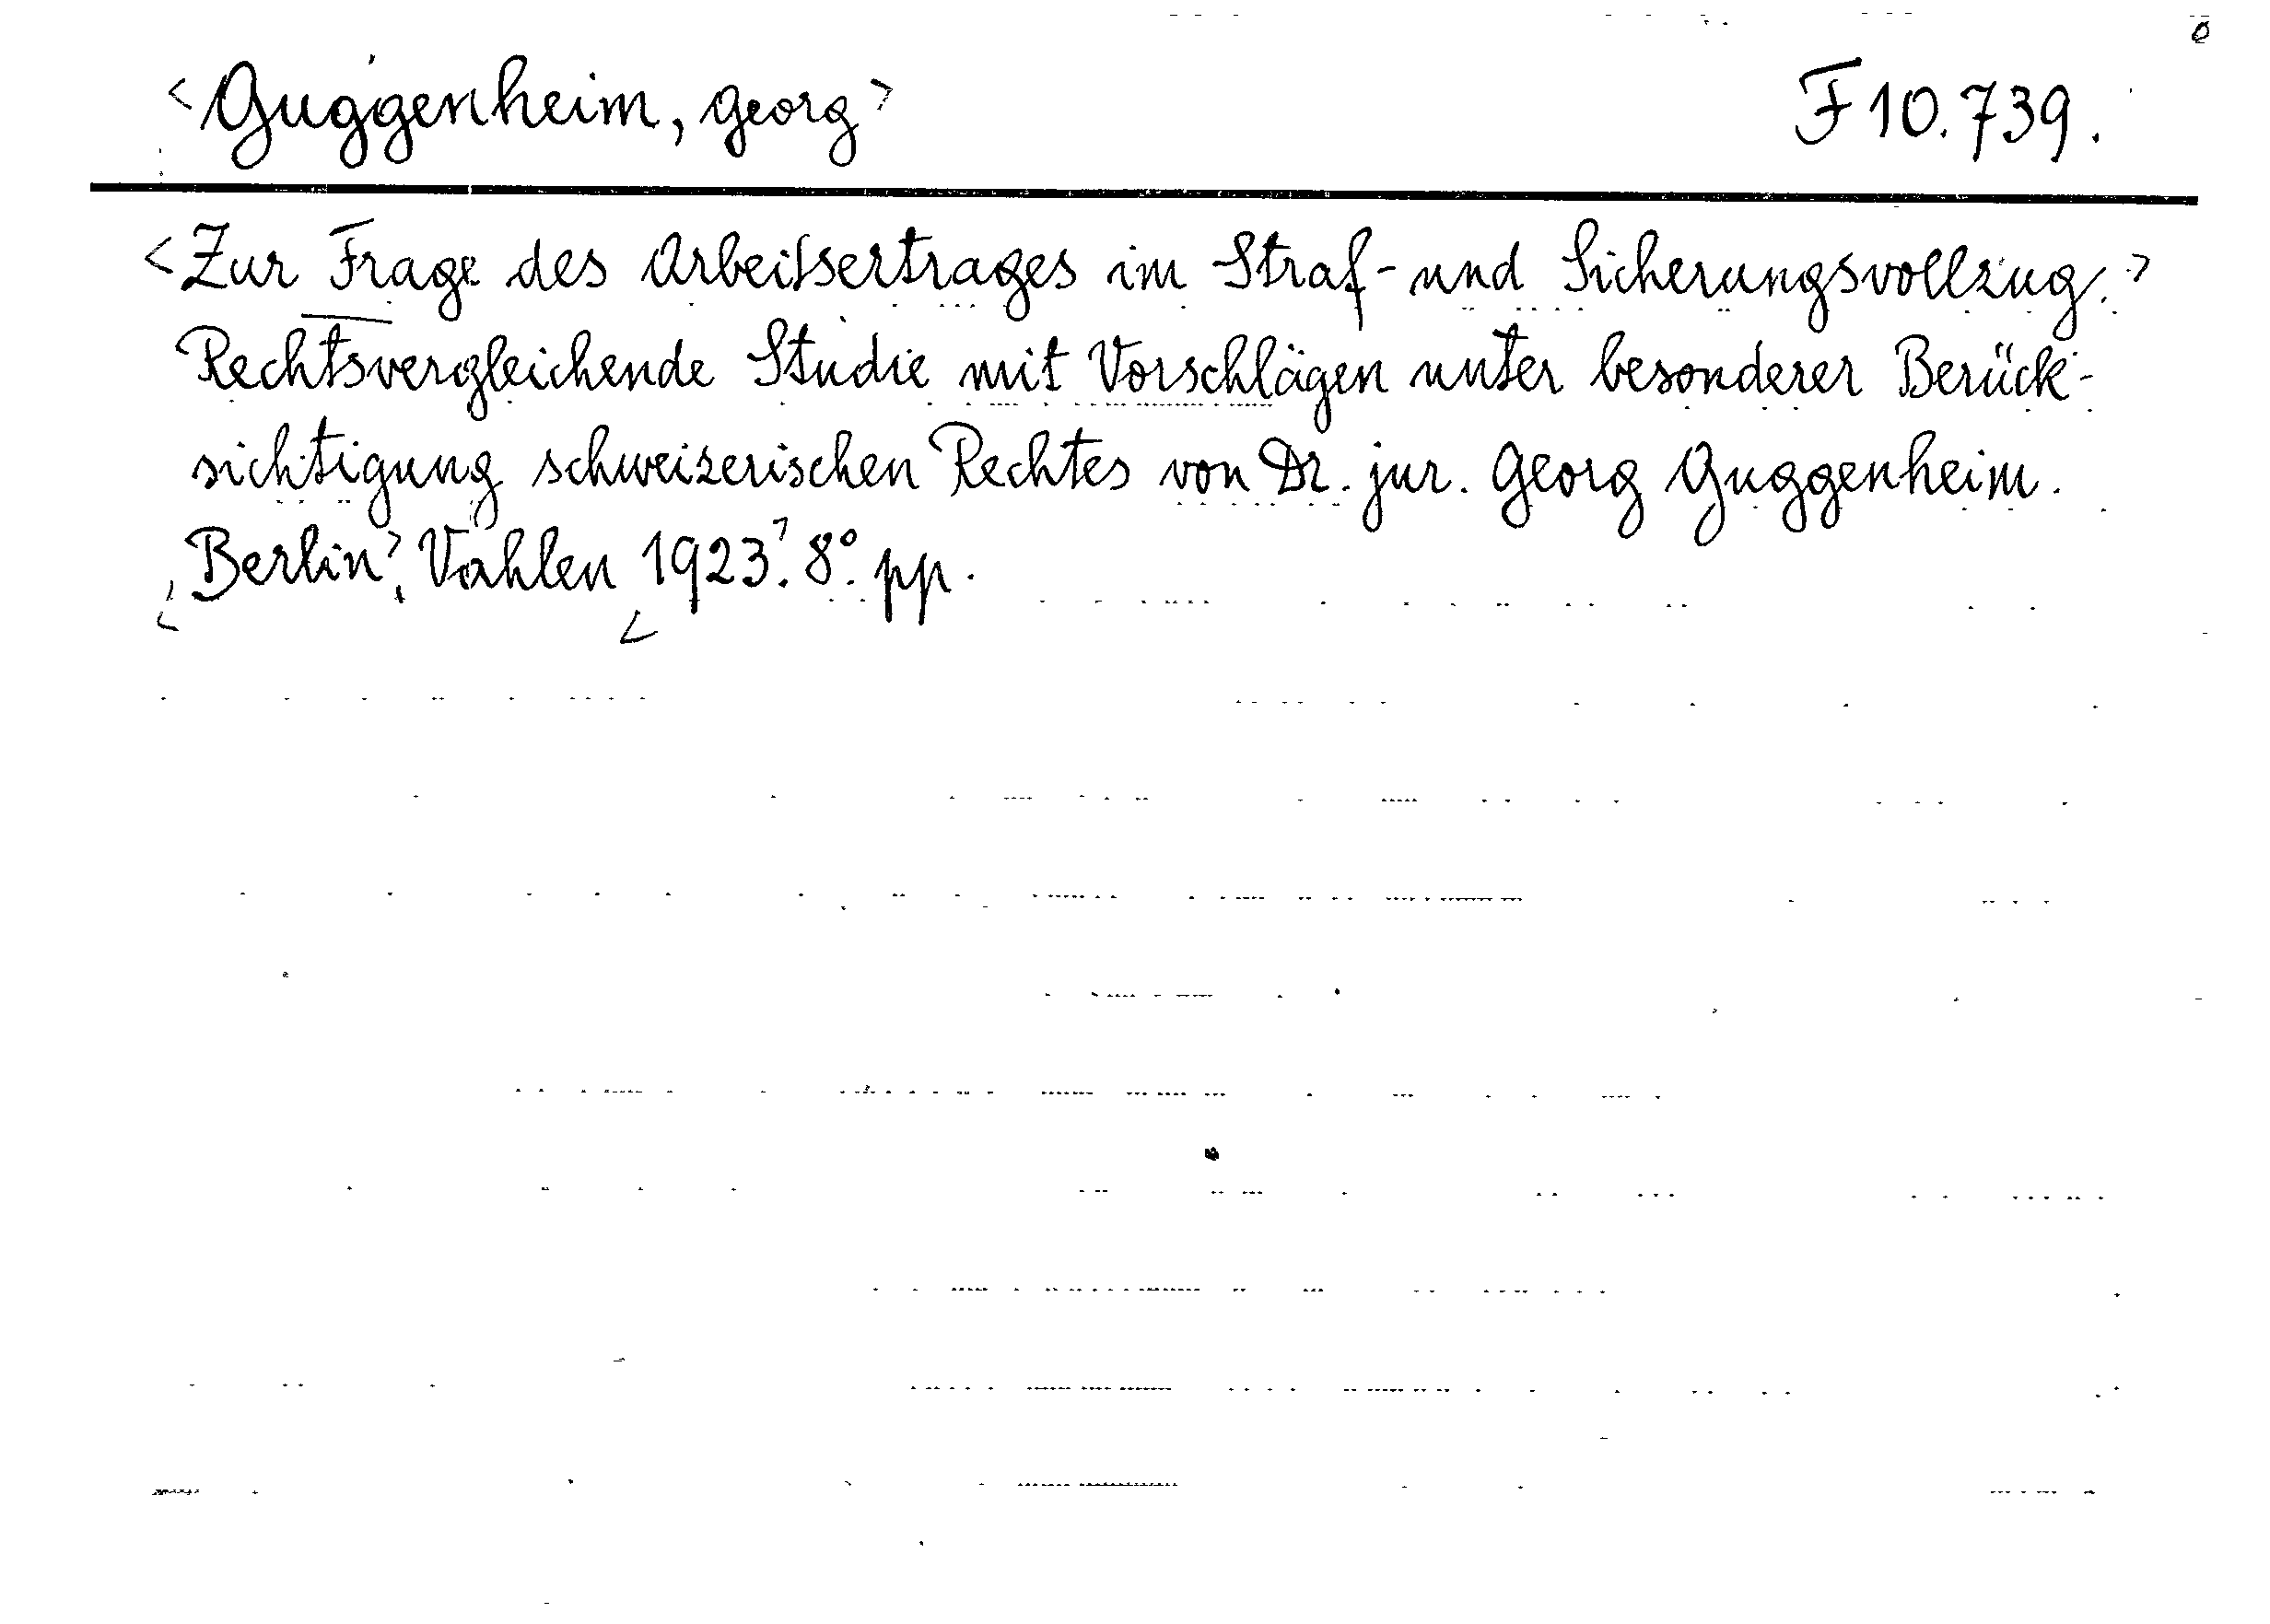 <Guggenheim, Georg> F 10.739.
<Zur Frage des Arbeitsertrages im Straf- und Sicherungsvollzug.>
Rechtsvergleichende Studie mit Vorschlägen unter besonderer Berück-
sichtigung schweizerischen Rechtes von Dr. jur. Georg Guggenheim.
<Berlin>, Vahlen <1923>. 8°. pp.